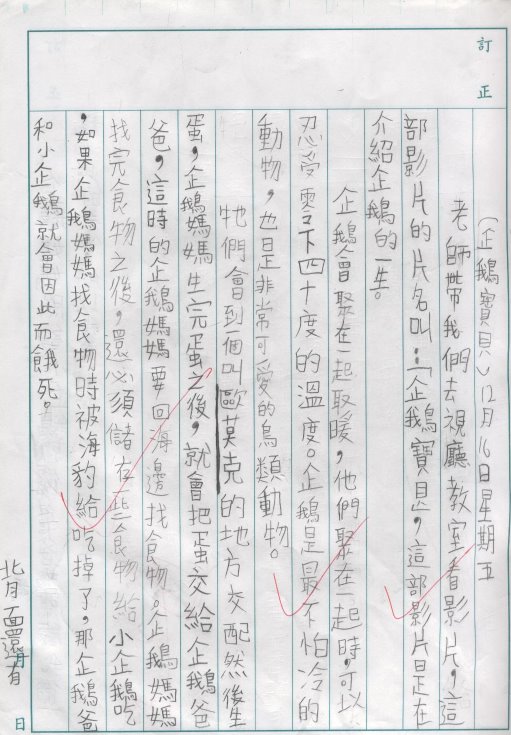 訂正
(企鵝寶貝)12月16日星期五
老師帶我們去視廳教室看影片,這
部影片的片名叫:「企鵝寶貝,這部影片是在
介紹企鵝的一生。
企鵝會聚在一起取暖,他們聚在一起時,可以
忍受零下四十度的溫度。企鵝是最不怕冷的
動物,也是非常可愛的鳥類動物。
牠們會到個叫歐莫克的地方交配然後生
蛋,企鵝媽媽生完蛋之後,就會把蛋交給企鵝爸
爸,這時的企鵝媽媽要回海邊找食物。企鵝媽媽
找完食物之後,還必須儲存一些食物給小企鵝吃
,如果企鵝媽媽找食物時被海豹給吃掉了,那企鵝爸
和小企鵝就會因此而餓死。
背面還有
月 日